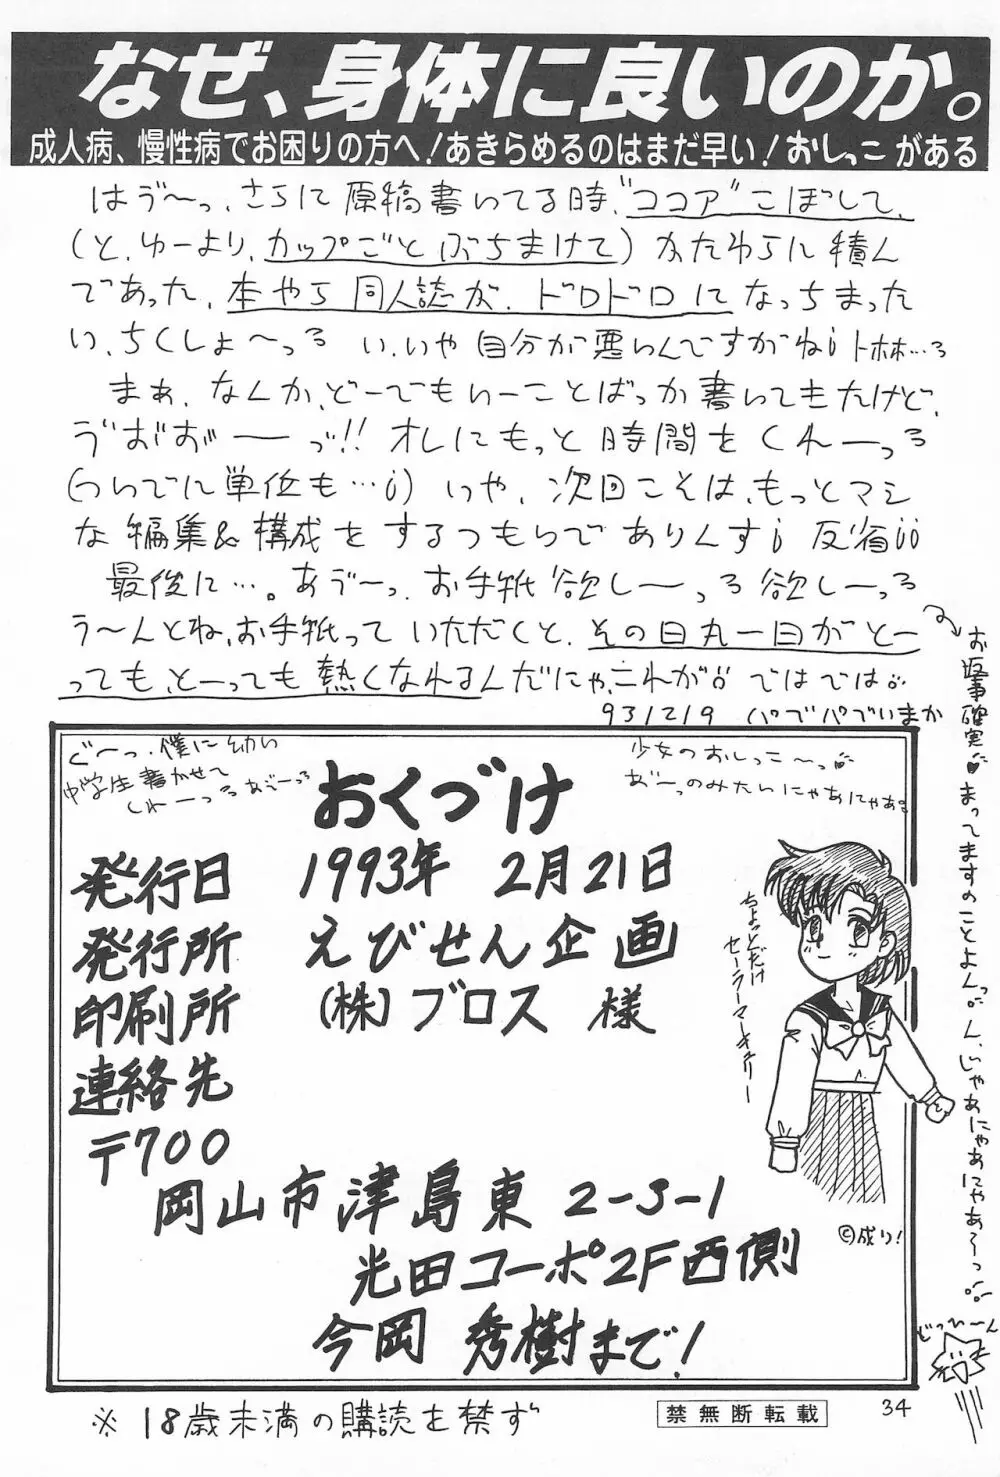 なぜ、身体に良いのか。
成人病、慢性病でお困りの方へ!あきらめるのはまだ早い!おしっこがある
はゔ〜っ、さらに原稿書いてる時、"ココア"こぼして、
(と、ゆーより、カップごとぶちまけて)かたわらに積ん
であった、本やら同人誌が、ドロドロになっちまった
い、ちくしょ〜っ い、いや自分が悪いんですがね トホホ…
まぁ、なんか、どーでもいーことばっか書いてきたけど、
ゔおおおーっ!!オレにもっと時間をくれーっ
(ついでに単位も…)いや、次回こそは、もっとマシ
な編集&構成をするつもりでありんす 反省
最後に…。あゔ〜っ、お手紙欲しーっ欲しーっ
う〜んとね、お手紙っていただくと、その日丸一日がとー
っても、とーっても熱くなれるんだにゃ、これが ではでは
931219 パデパデいまか
お返事確実 まってますのことよんっ
おくづけ
発行日 1993年 2月21日
発行所 えびせん企画
印刷所 (株)ブロス 様
連絡先
〒700
岡山市津島東2-3-1
光田コーポ2F西側
今岡 秀樹まで!
ちょっとだけ
セーラーマーキュリー
©成り!
どっひーん
※18歳未満の購読を禁ず
禁無断転載
34